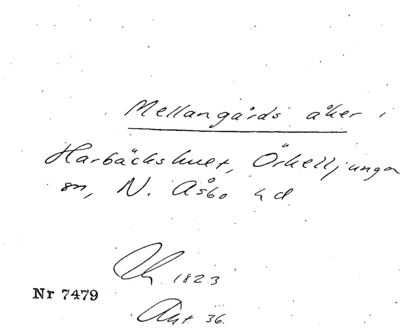 Mellangårds åker i
Harbäckshult, Örkelljunga
sn, N. Åsbo hd
1823
Nr 7479
Akt 36.